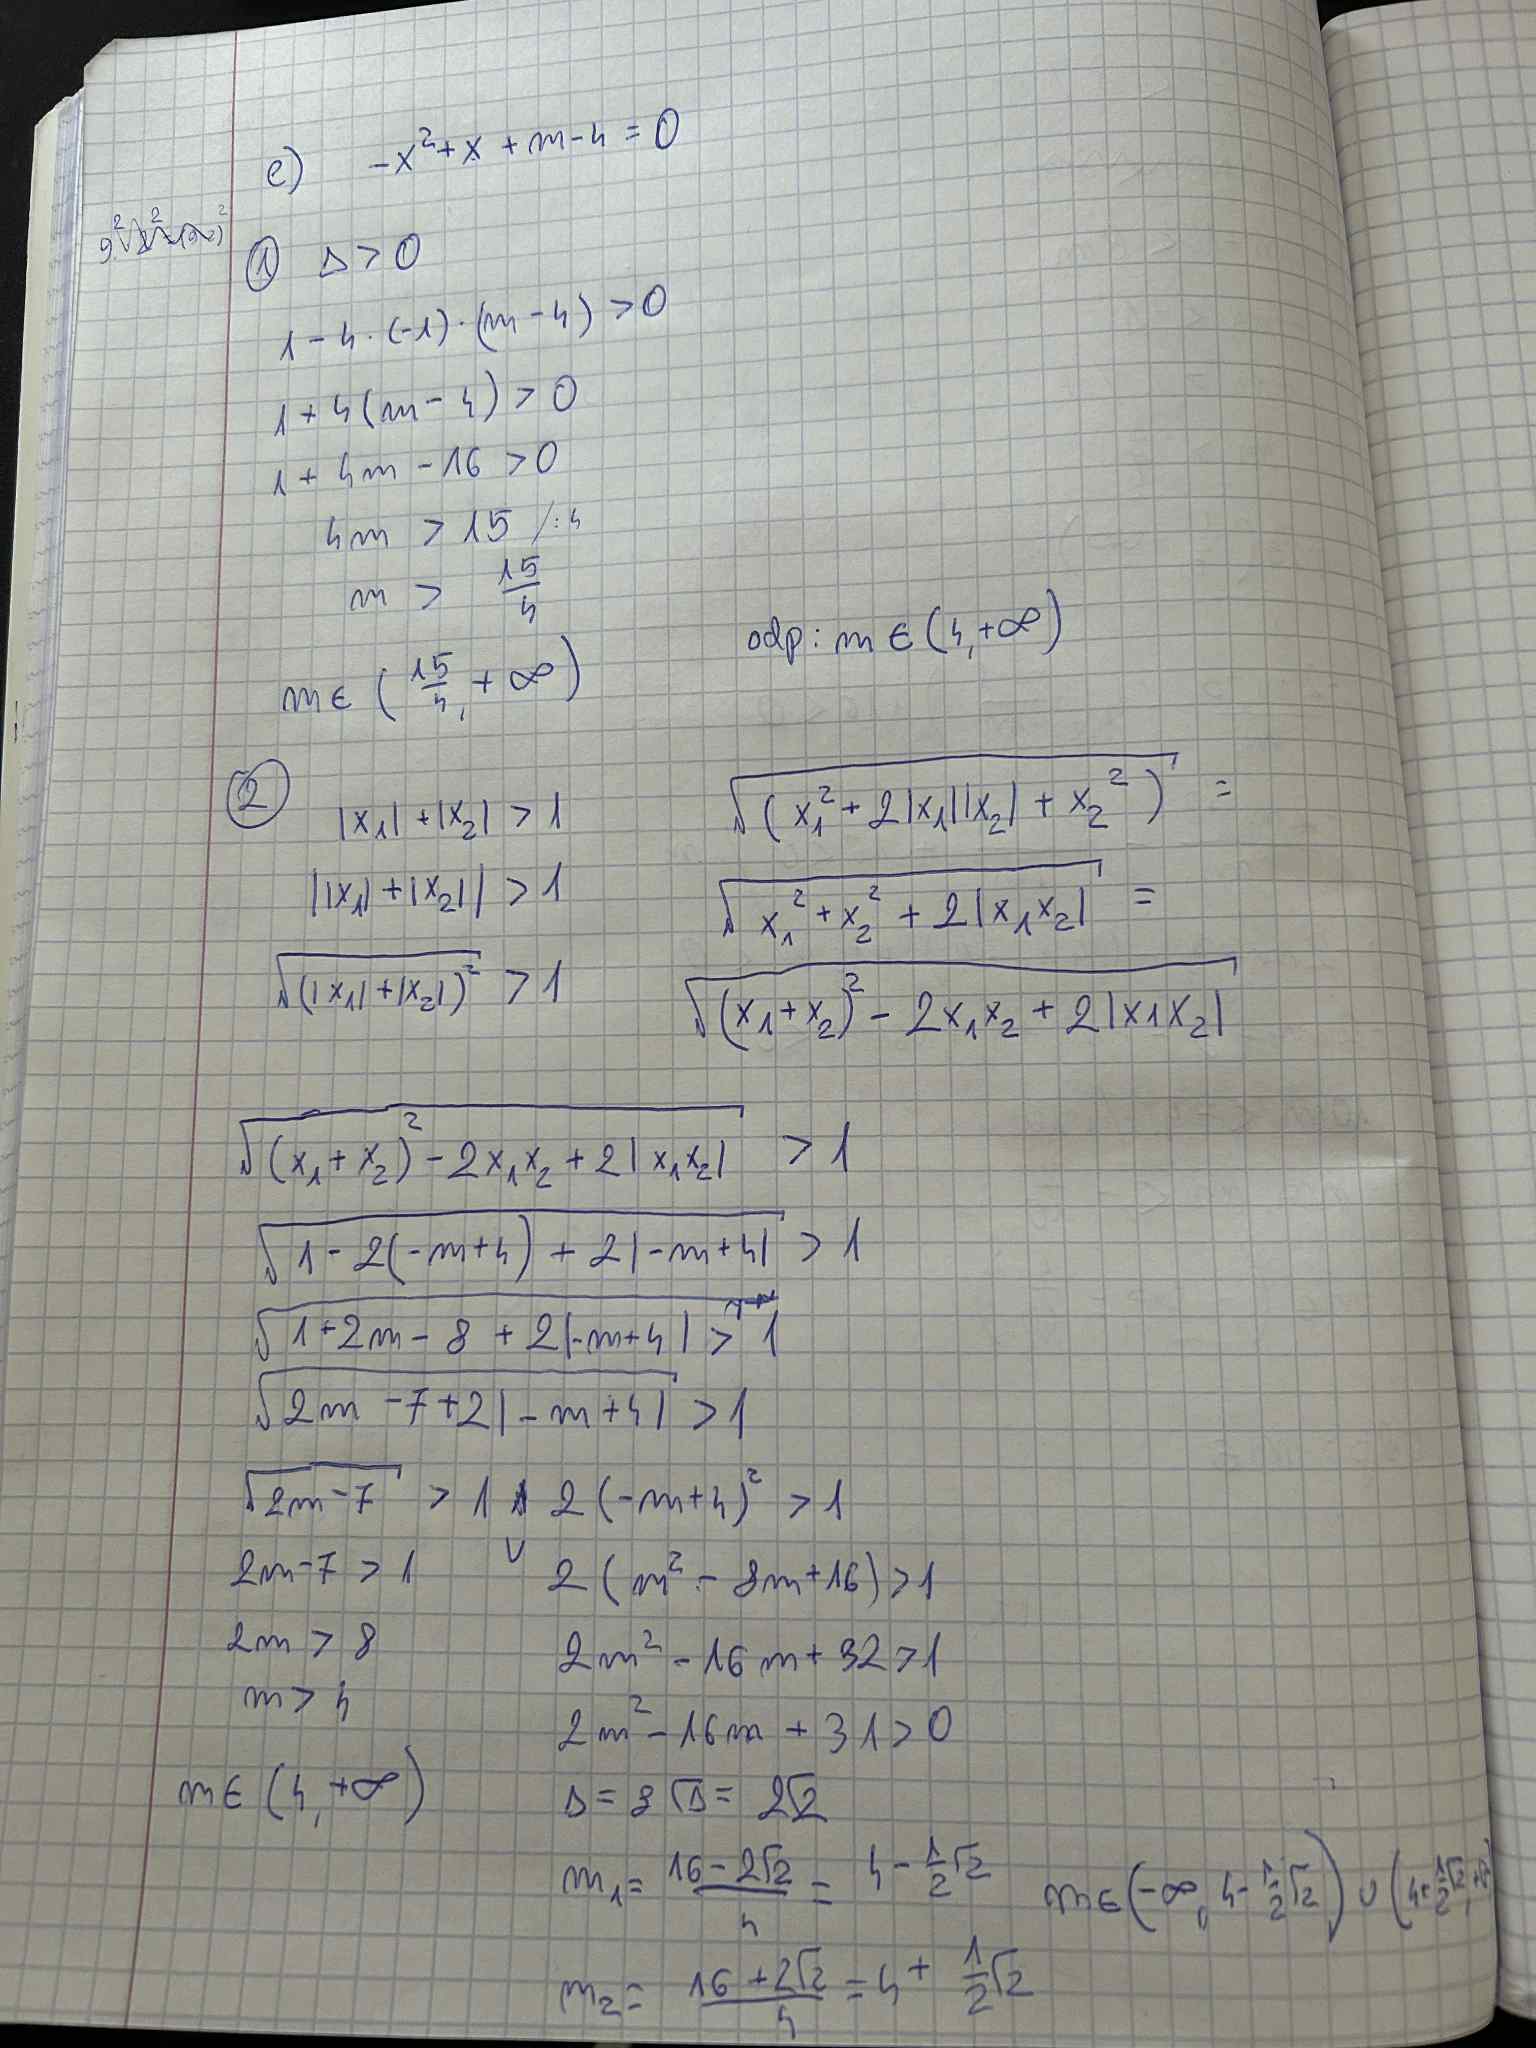 e) -x²+x+m-4=0
① Δ>0
1-4·(-1)·(m-4)>0
1+4(m-4)>0
1+4m-16>0
4m>15 /:4
m> 15/4
m∈(15/4,+∞)
odp: m∈(4,+∞)
② |x₁|+|x₂|>1
||x₁|+|x₂||>1
√((|x₁|+|x₂|)²) >1
√(x₁²+2|x₁||x₂|+x₂²) =
√(x₁²+x₂²+2|x₁x₂|) =
√((x₁+x₂)²-2x₁x₂+2|x₁x₂|)
√((x₁+x₂)²-2x₁x₂+2|x₁x₂|) >1
√(1-2(-m+4)+2|-m+4|) >1
√(1+2m-8+2|-m+4|) >1
√(2m-7+2|-m+4|) >1
√(2m-7) >1 ∨ 2(-m+4)²>1
2m-7>1
2m>8
m>4
m∈(4,+∞)
2(m²-8m+16)>1
2m²-16m+32>1
2m²-16m+31>0
Δ=8 √Δ=2√2
m₁= (16-2√2)/4 = 4-1/2√2
m₂= (16+2√2)/4 = 4+1/2√2
m∈(-∞,4-1/2√2)∪(4+1/2√2,+∞)